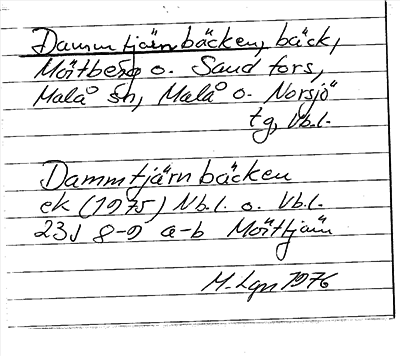 Dammtjärnbäcken, bäck,
Möitberg o. Sand fors,
Malå sn, Malå o. Norsjö
tg, Vb.l.
Dammtjärnbäcken
ek (1975) Nb.l. o. Vb.l.
23J 8-9 a-b Möittjärn
M. Lgn 1976